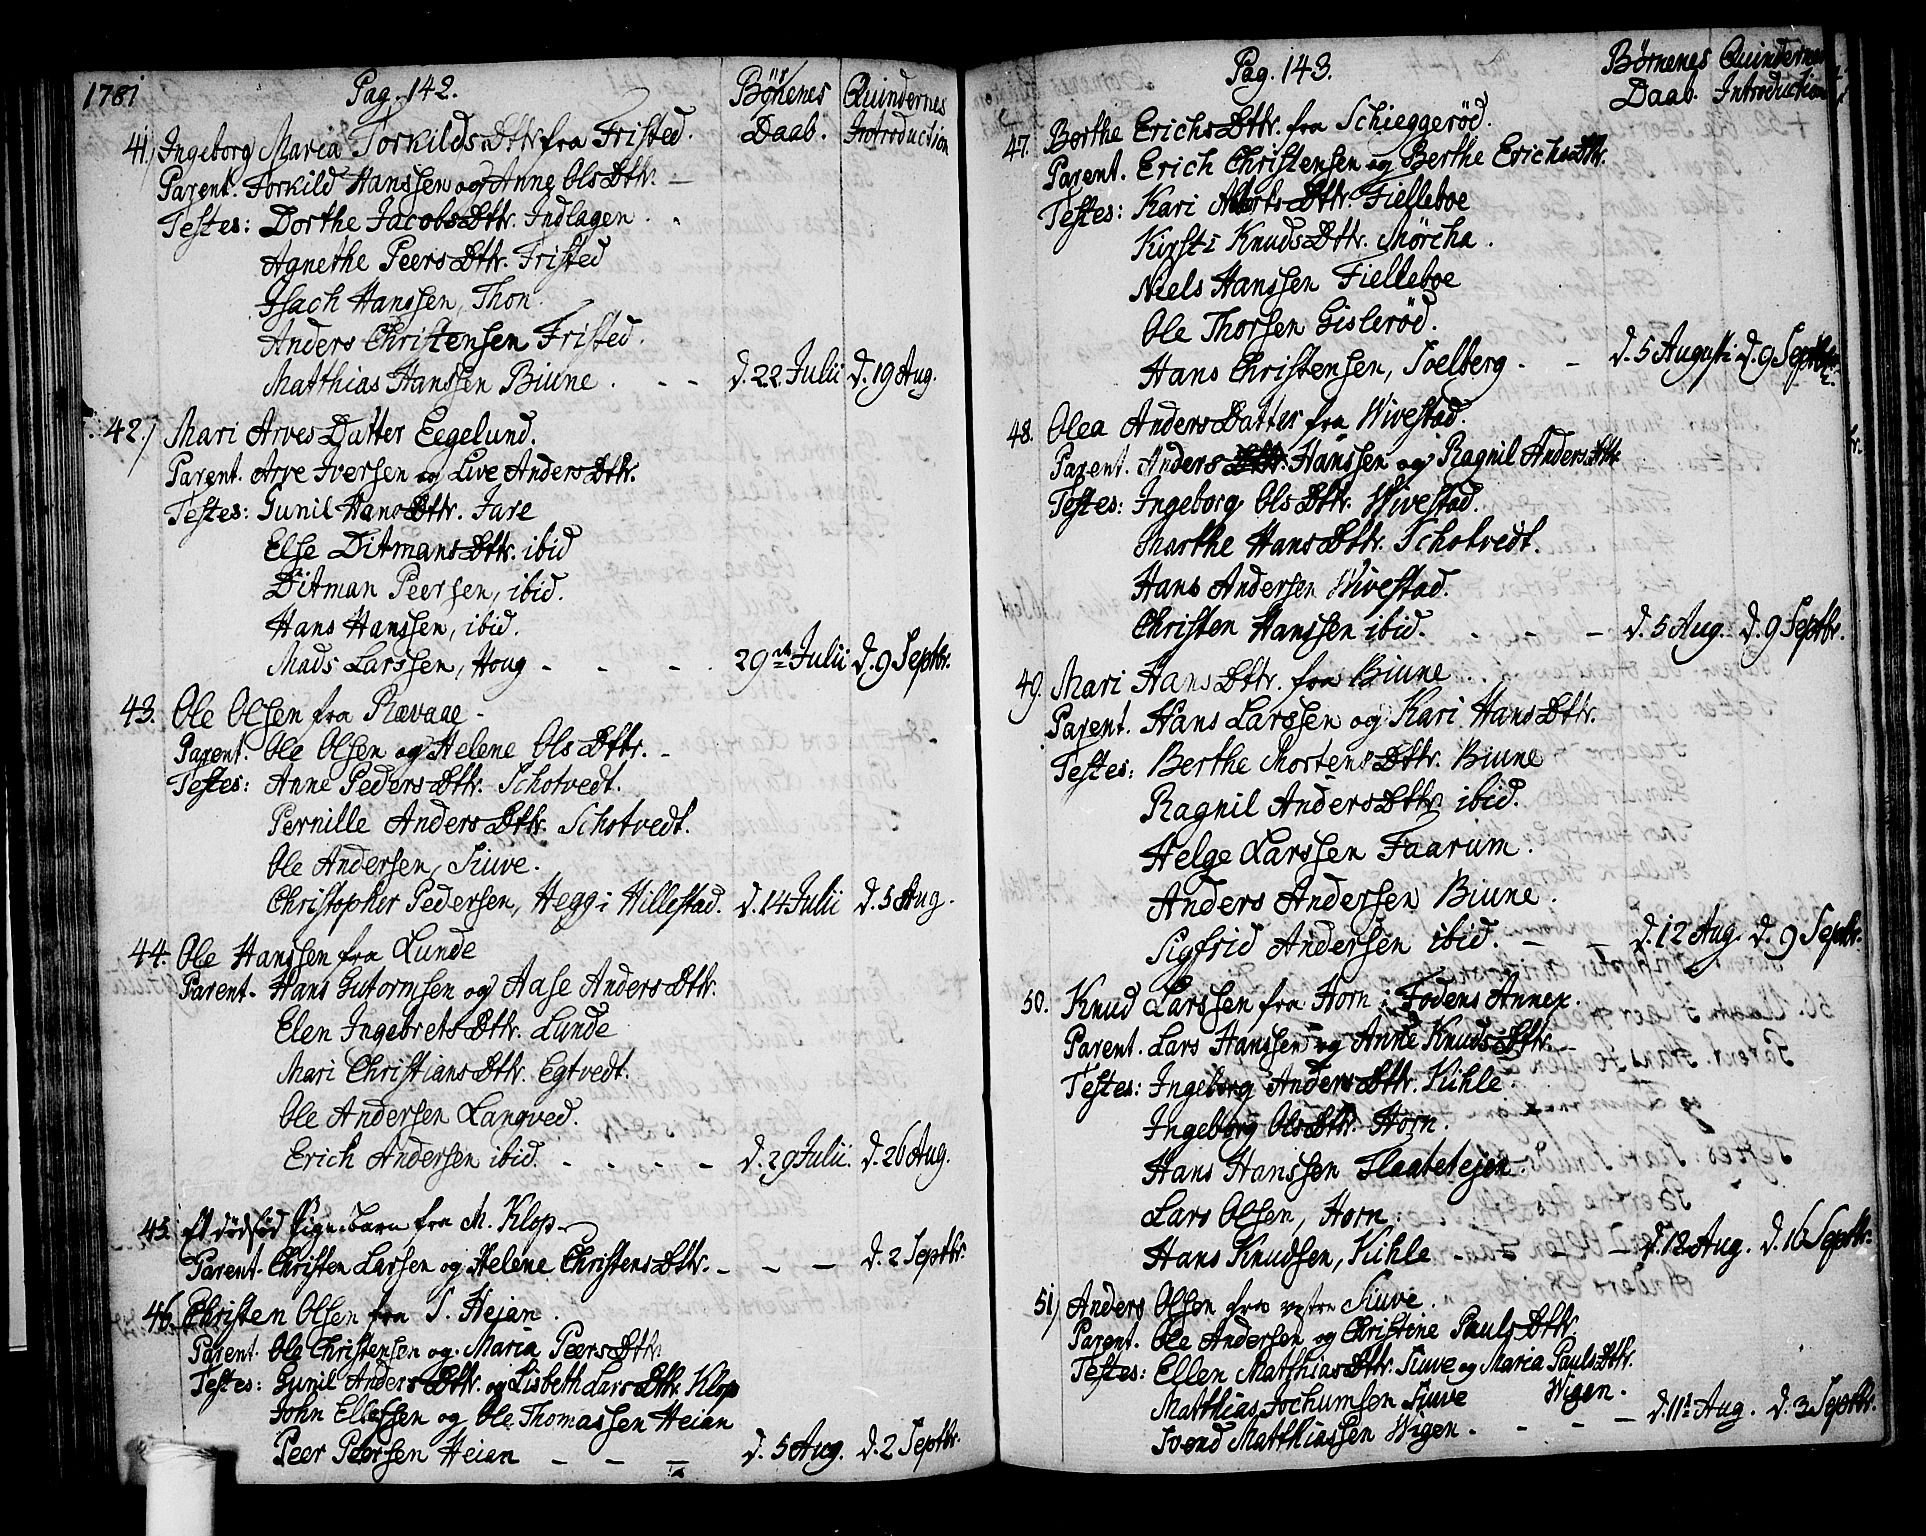 1781
Pag. 142.
Börnenes Daab.
Quindernes Introduction
41) Ingeborg Maria TorkildsDttr fra Fristed.
Parent. Torkild Hanssen og Anne OlsDttr. -
Testes: Dorthe JacobsDttr. Indlagen.
Agnethe PeersDttr. Fristed
Isach Hanssen, Thon.
Anders Christensen Fristed.
Matthias Hanssen Biune. - - d. 22 Julii d. 19 Aug.
42) Mari ArvesDatter Eegelund.
Parent. Arve Iversen og Live AndersDttr.
Testes: Gunil HansDttr. Jare
Else DitmansDttr. ibid
Ditman Peersen, ibid.
Hans Hanssen, ibid.
Mads Larssen, Houg - - - 29de Julii d. 9 Septbr.
43. Ole Olsen fra Rævaae -
Parent. Ole Olsen og Helene OlsDttr. -
Testes: Anne PedersDttr. Schotvedt.
Pernille AndersDttr. Schotvedt.
Ole Andersen, Siuve.
Christopher Pedersen, Hegg i Hillestad. d. 14 Julii d. 5 Aug.
44. Ole Hanssen fra Lunde
Parent. Hans Gutormsen og Aase AndersDttr.
Elen IngebretsDttr. Lunde
Mari ChristiansDttr. Egtvedt.
Ole Andersen Langved.
Erich Andersen ibid. - - - - d. 29 Julii. d. 26 Aug.
45. Et dödfödt Pigebarn fra M. Klop -
Parent. Christen Larsen og Helene ChristensDttr. - - - d. 2 Septbr.
46. Christen Olsen fra S. Hejan.
Parent. Ole Christensen og Maria PeersDttr
Testes: Gunil AndersDttr. og Lisbeth LarsDttr. Klop
John Ellefsen og Ole Thomassen Heian
Peer Peersen Heian - - - d. 5 Aug. d. 2 Septbr.
Pag. 143.
Börnenes Daab.
Quindernes Introduction
47. Berthe ErichsDttr. fra Schieggeröd.
Parent. Erich Christensen og Berthe ErichsDttr.
Testes: Kari Dttr. Fielleboe
Kirsti KnudsDttr. Mörcha.
Niels Hanssen Fielleboe
Ole Thorsen Gisleröd.
Hans Christensen, Soelberg - - d. 5 Augusti d. 9 Septbr.
48. Olea AndersDatter fra Wivestad.
Parent. Anders Hanssen og Ragnil AndersDttr
Testes: Ingeborg OlsDttr. Wivestad.
Marthe HansDttr. Schotvedt.
Hans Andersen Wivestad.
Christen Hanssen ibid. - - - d. 5 Aug. d. 9 Septbr.
49. Mari HansDttr. fra Biune
Parent. Hans Larssen og Kari HansDttr.
Testes: Berthe MortensDttr. Biune
Ragnil AndersDttr ibid.
Helge Larssen Faarum.
Anders Andersen Biune.
Sigfrid Andersen ibid. - - d. 12 Aug. d. 9 Septbr.
50. Knud Larssen fra Horn i Fodens Annex.
Parent. Lars Hanssen og Anne KnudsDttr. -
Testes: Ingeborg AndersDttr. Kihle.
Ingeborg OlsDttr. Horn.
Hans Hanssen Flaatetejen.
Lars Olsen, Horn.
Hans Knudsen, Kihle - - - - d. 12 Aug. d. 16 Septbr.
51) Anders Olsen fra vestre Siuve.
Parent. Ole Andersen og Christine PaulsDttr
Testes: Ellen MatthiasDttr. Siuve og Maria PaulsDttr. Wigen.
Matthias Jochumsen Siuve
Svend Matthiassen Wigen. - - - d. 11te Aug. d. 3 Septbr.